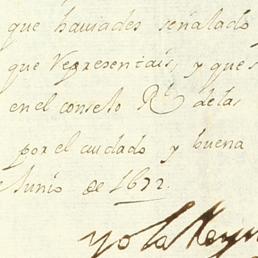 que haviades señalado
que Representais, y que s
en el consejo Rl. de las
por el cuidado y buena
Junio de 1672.
yo la Reyn